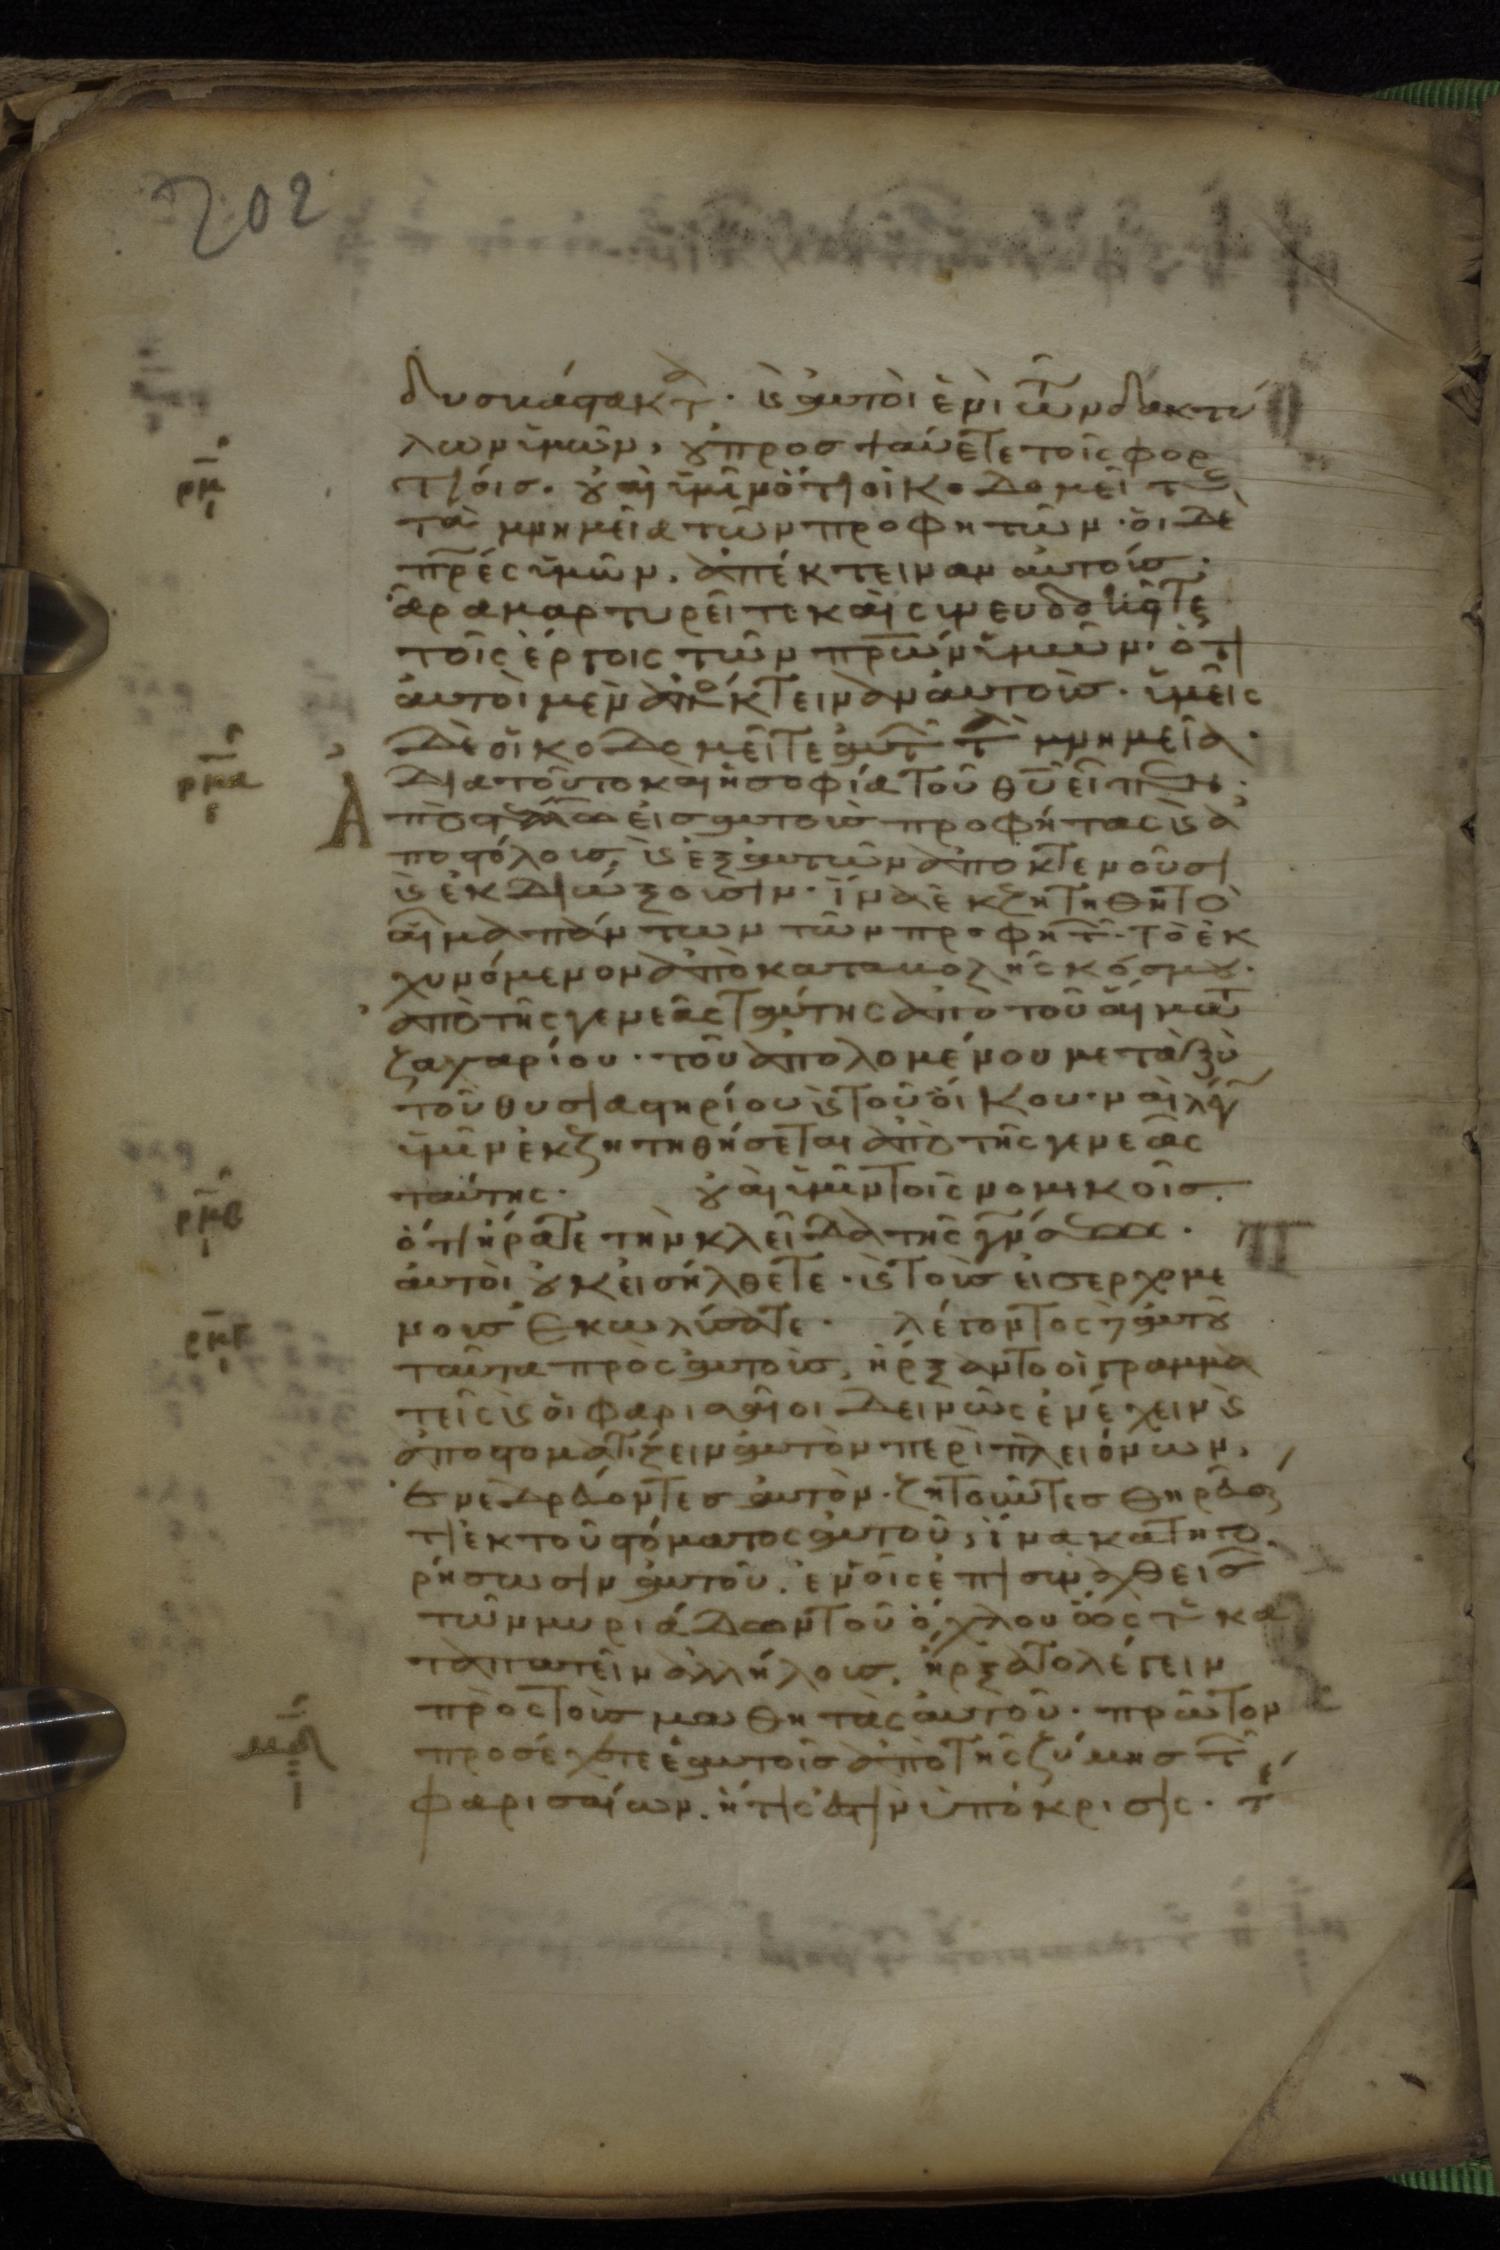 202
δυσβάστακτα · καὶ αὐτοὶ ἑνὶ τῶν δακτύ
λων ὑμῶν, οὐ προσψαύετε τοῖς φορ
τίοις · οὐαὶ ὑμῖν ὅτι οἰκοδομεῖτε
ρμ
τὰ μνημεῖα τῶν προφητῶν · οἱ δὲ
πρ̅ες ὑμῶν, ἀπέκτειναν αὐτούς ·
ἄρα μαρτυρεῖτε καὶ συνευδοκεῖτε
τοῖς ἔργοις τῶν πρ̅ων ὑμῶν · ὅτι
αὐτοὶ μὲν ἀπέκτειναν αὐτούς · ὑμεῖς
δὲ οἰκοδομεῖτε αὐτῶν τὰ μνημεῖα ·
ρμα
διατοῦτο καὶ ἡ σοφία τοῦ θυ̅ εἶπεν ·
Ἀποστελῶ εἰς αὐτοὺς προφήτας καὶ ἀ
ποστόλους, καὶ ἐξ αὐτῶν ἀποκτενοῦσι
καὶ ἐκδιώξουσιν · ἵνα ἐκζητηθῇ τὸ
αἷμα πάντων τῶν προφητῶν · τὸ ἐκ
χυνόμενον ἀπὸ καταβολῆς κόσμου ·
ἀπὸ τῆς γενεᾶς ταύτης ἀπὸ τοῦ αἵματος
ζαχαρίου · τοῦ ἀπολομένου μεταξὺ
τοῦ θυσιαστηρίου καὶ τοῦ οἴκου · ναὶ λέγω
ὑμῖν ἐκζητηθήσεται ἀπὸ τῆς γενεᾶς
ταύτης · οὐαὶ ὑμῖν τοῖς νομικοῖς ·
ρμβ
ὅτι ἤρατε τὴν κλεῖδα τῆς γνώσεως ·
αὐτοὶ οὐκ εἰσήλθετε · καὶ τοὺς εἰσερχομέ
νους ἐκωλύσατε · λέγοντος δὲ αὐτοῦ
ρμγ
ταῦτα πρὸς αὐτούς, ἤρξαντο οἱ γραμμα
τεῖς καὶ οἱ φαρισαῖοι δεινῶς ἐνέχειν καὶ
ἀποστοματίζειν αὐτὸν περὶ πλειόνων,
ἐνεδρεύοντες αὐτόν · ζητοῦντες θηρεῦσαί
τι ἐκ τοῦ στόματος αὐτοῦ, ἵνα κατηγο
ρήσωσιν αὐτοῦ · ἐν οἷς ἐπισυναχθεισῶν
τῶν μυριάδων τοῦ ὄχλου ὥστε κα
ταπατεῖν ἀλλήλους, ἤρξατο λέγειν
πρὸς τοὺς μαθητὰς αὐτοῦ · πρῶτον
ρμδ
προσέχετε ἑαυτοῖς ἀπὸ τῆς ζύμης τῶν
φαρισαίων · ἥτις ἐστὶν ὑπόκρισις ·